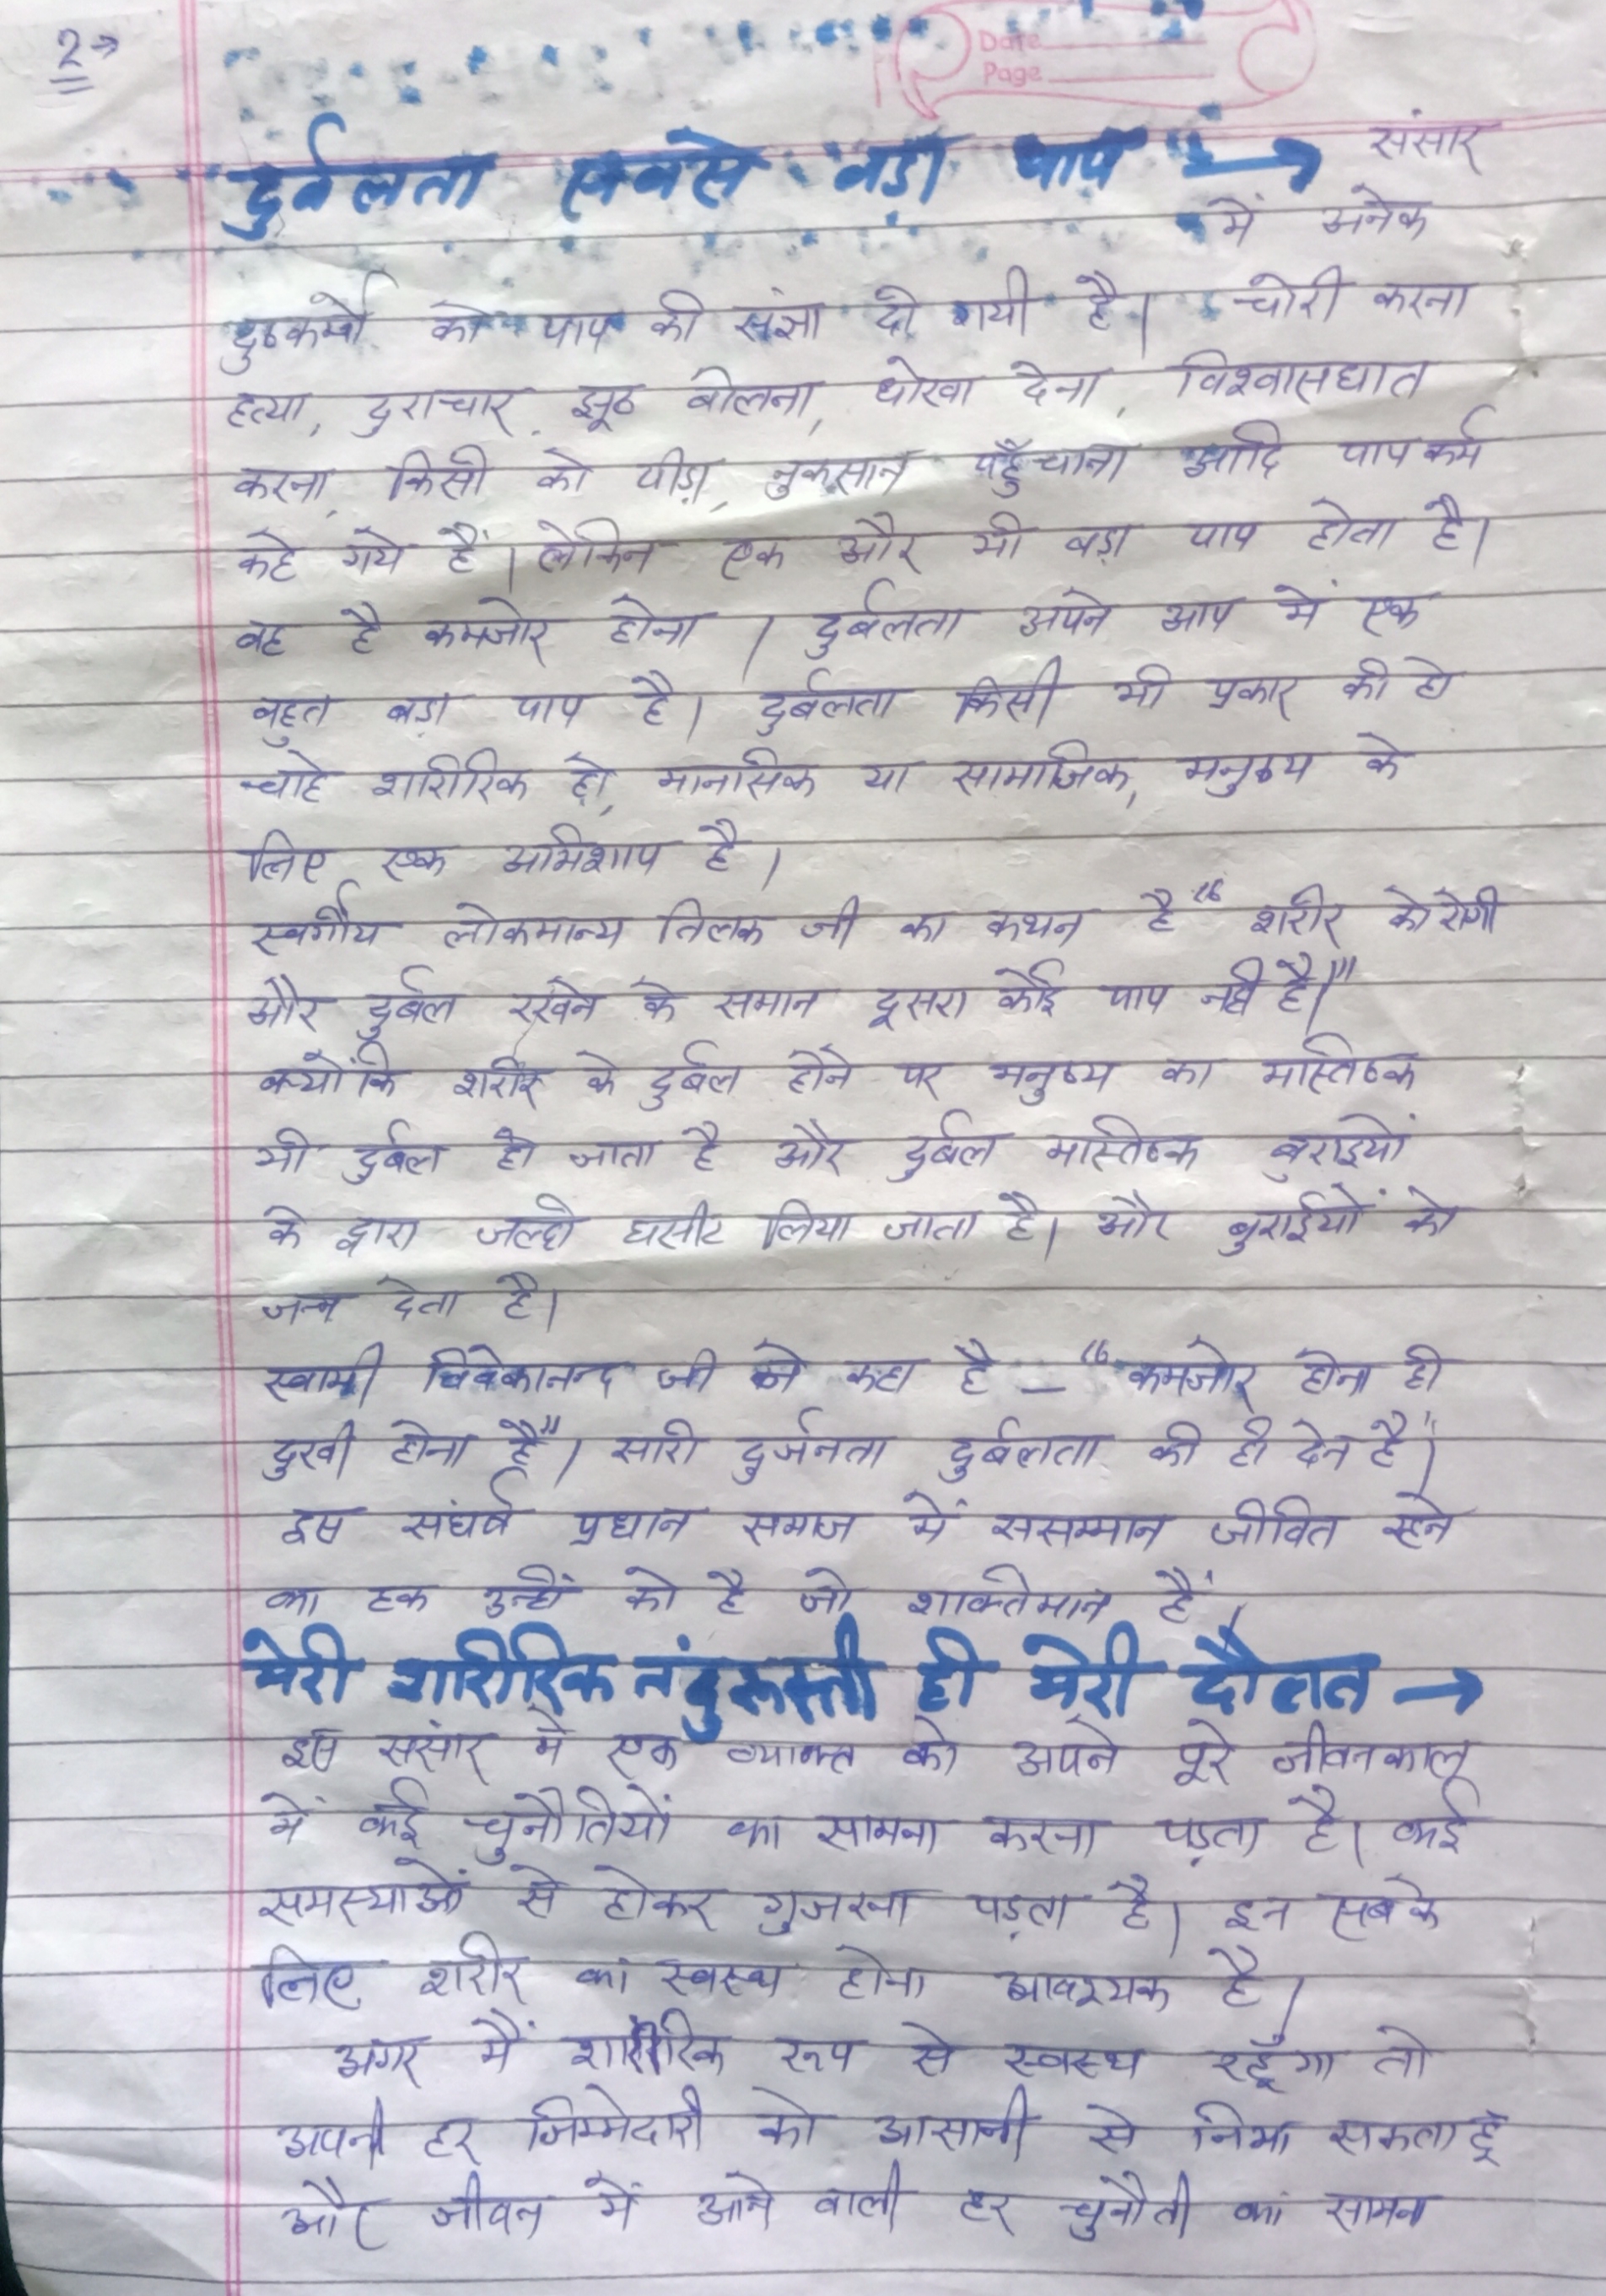 2→
Date
Page
दुर्बलता सबसे बड़ा पाप → संसार
में अनेक
दुष्कर्मों को पाप की संज्ञा दी गयी है। चोरी करना
हत्या, दुराचार, झूठ बोलना, धोखा देना, विश्वासघात
करना, किसी को पीड़ा, नुकसान पहुँचाना आदि पाप कर्म
कहे गये हैं। लेकिन एक और भी बड़ा पाप होता है।
वह है कमजोर होना। दुर्बलता अपने आप में एक
बहुत बड़ा पाप है। दुर्बलता किसी भी प्रकार की हो
चाहे शारीरिक हो, मानसिक या सामाजिक, मनुष्य के
लिए एक अभिशाप है।
स्वर्गीय लोकमान्य तिलक जी का कथन है "शरीर को रोगी
और दुर्बल रखने के समान दूसरा कोई पाप नही है।"
क्योंकि शरीर के दुर्बल होने पर मनुष्य का मस्तिष्क
भी दुर्बल हो जाता है और दुर्बल मस्तिष्क बुराइयों
के द्वारा जल्दी घसीट लिया जाता है। और बुराईयों को
जन्म देता है।
स्वामी विवेकानन्द जी ने कहा है – "कमजोर होना ही
दुखी होना है"। सारी दुर्जनता दुर्बलता की ही देन है"।
इस संघर्ष प्रधान समाज में ससम्मान जीवित रहने
का हक उन्हीं को है जो शक्तिमान हैं।
मेरी शारीरिक तंदुरूस्ती ही मेरी दौलत →
इस संसार में एक व्यक्ति को अपने पूरे जीवनकाल
में कई चुनौतियों का सामना करना पड़ता है। कई
समस्याओं से होकर गुजरना पड़ता है। इन सबके
लिए शरीर का स्वस्थ होना आवश्यक है।
अगर मैं शारीरिक रूप से स्वस्थ रहूँगा तो
अपनी हर जिम्मेदारी को आसानी से निभा सकता हूं
और जीवन में आने वाली हर चुनौती का सामना